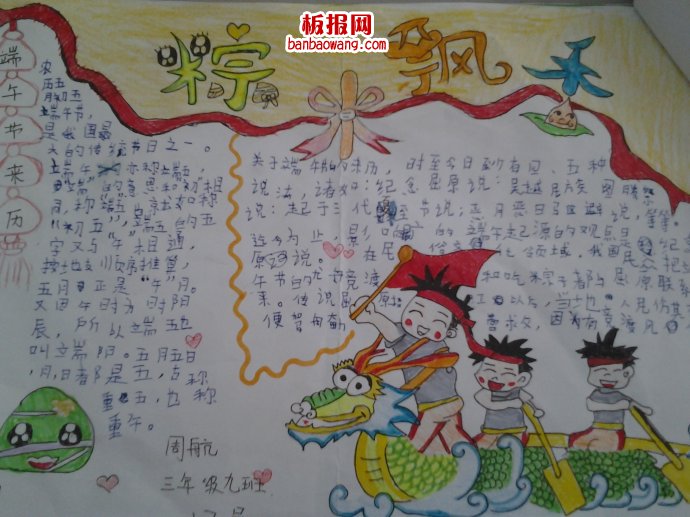 板报网
banbaowang.com
粽飘香
端午节来历
农历五
月初五
端午节,
是我国最
大的传统节日之一。
端午亦称端五,
"端"的意思和初相
同,称"端五"就如称
"初五",端五的五
字又与午相通,
按地支顺序推算,
五月正是"午"月。
又因午时为阳
辰,所以端五也
叫端阳。五月五日
,月,日都是五,古称
重五,也称
重午。
关于端午的来历,时至今日到有四、五种
说法,诸如:纪念屈原说;吴越民族图腾祭
说;起于三代夏至节说;五月恶日避说,等等。
迄今为止,影响广的端午起源的观点是纪念
原说。在民俗领域,我国民众把端
午节的竞渡和吃粽子都与屈原联系
来。传说屈原江以后,当地人民伤其
便驾舟奋营救,因有竞渡风
周航
三年级九班